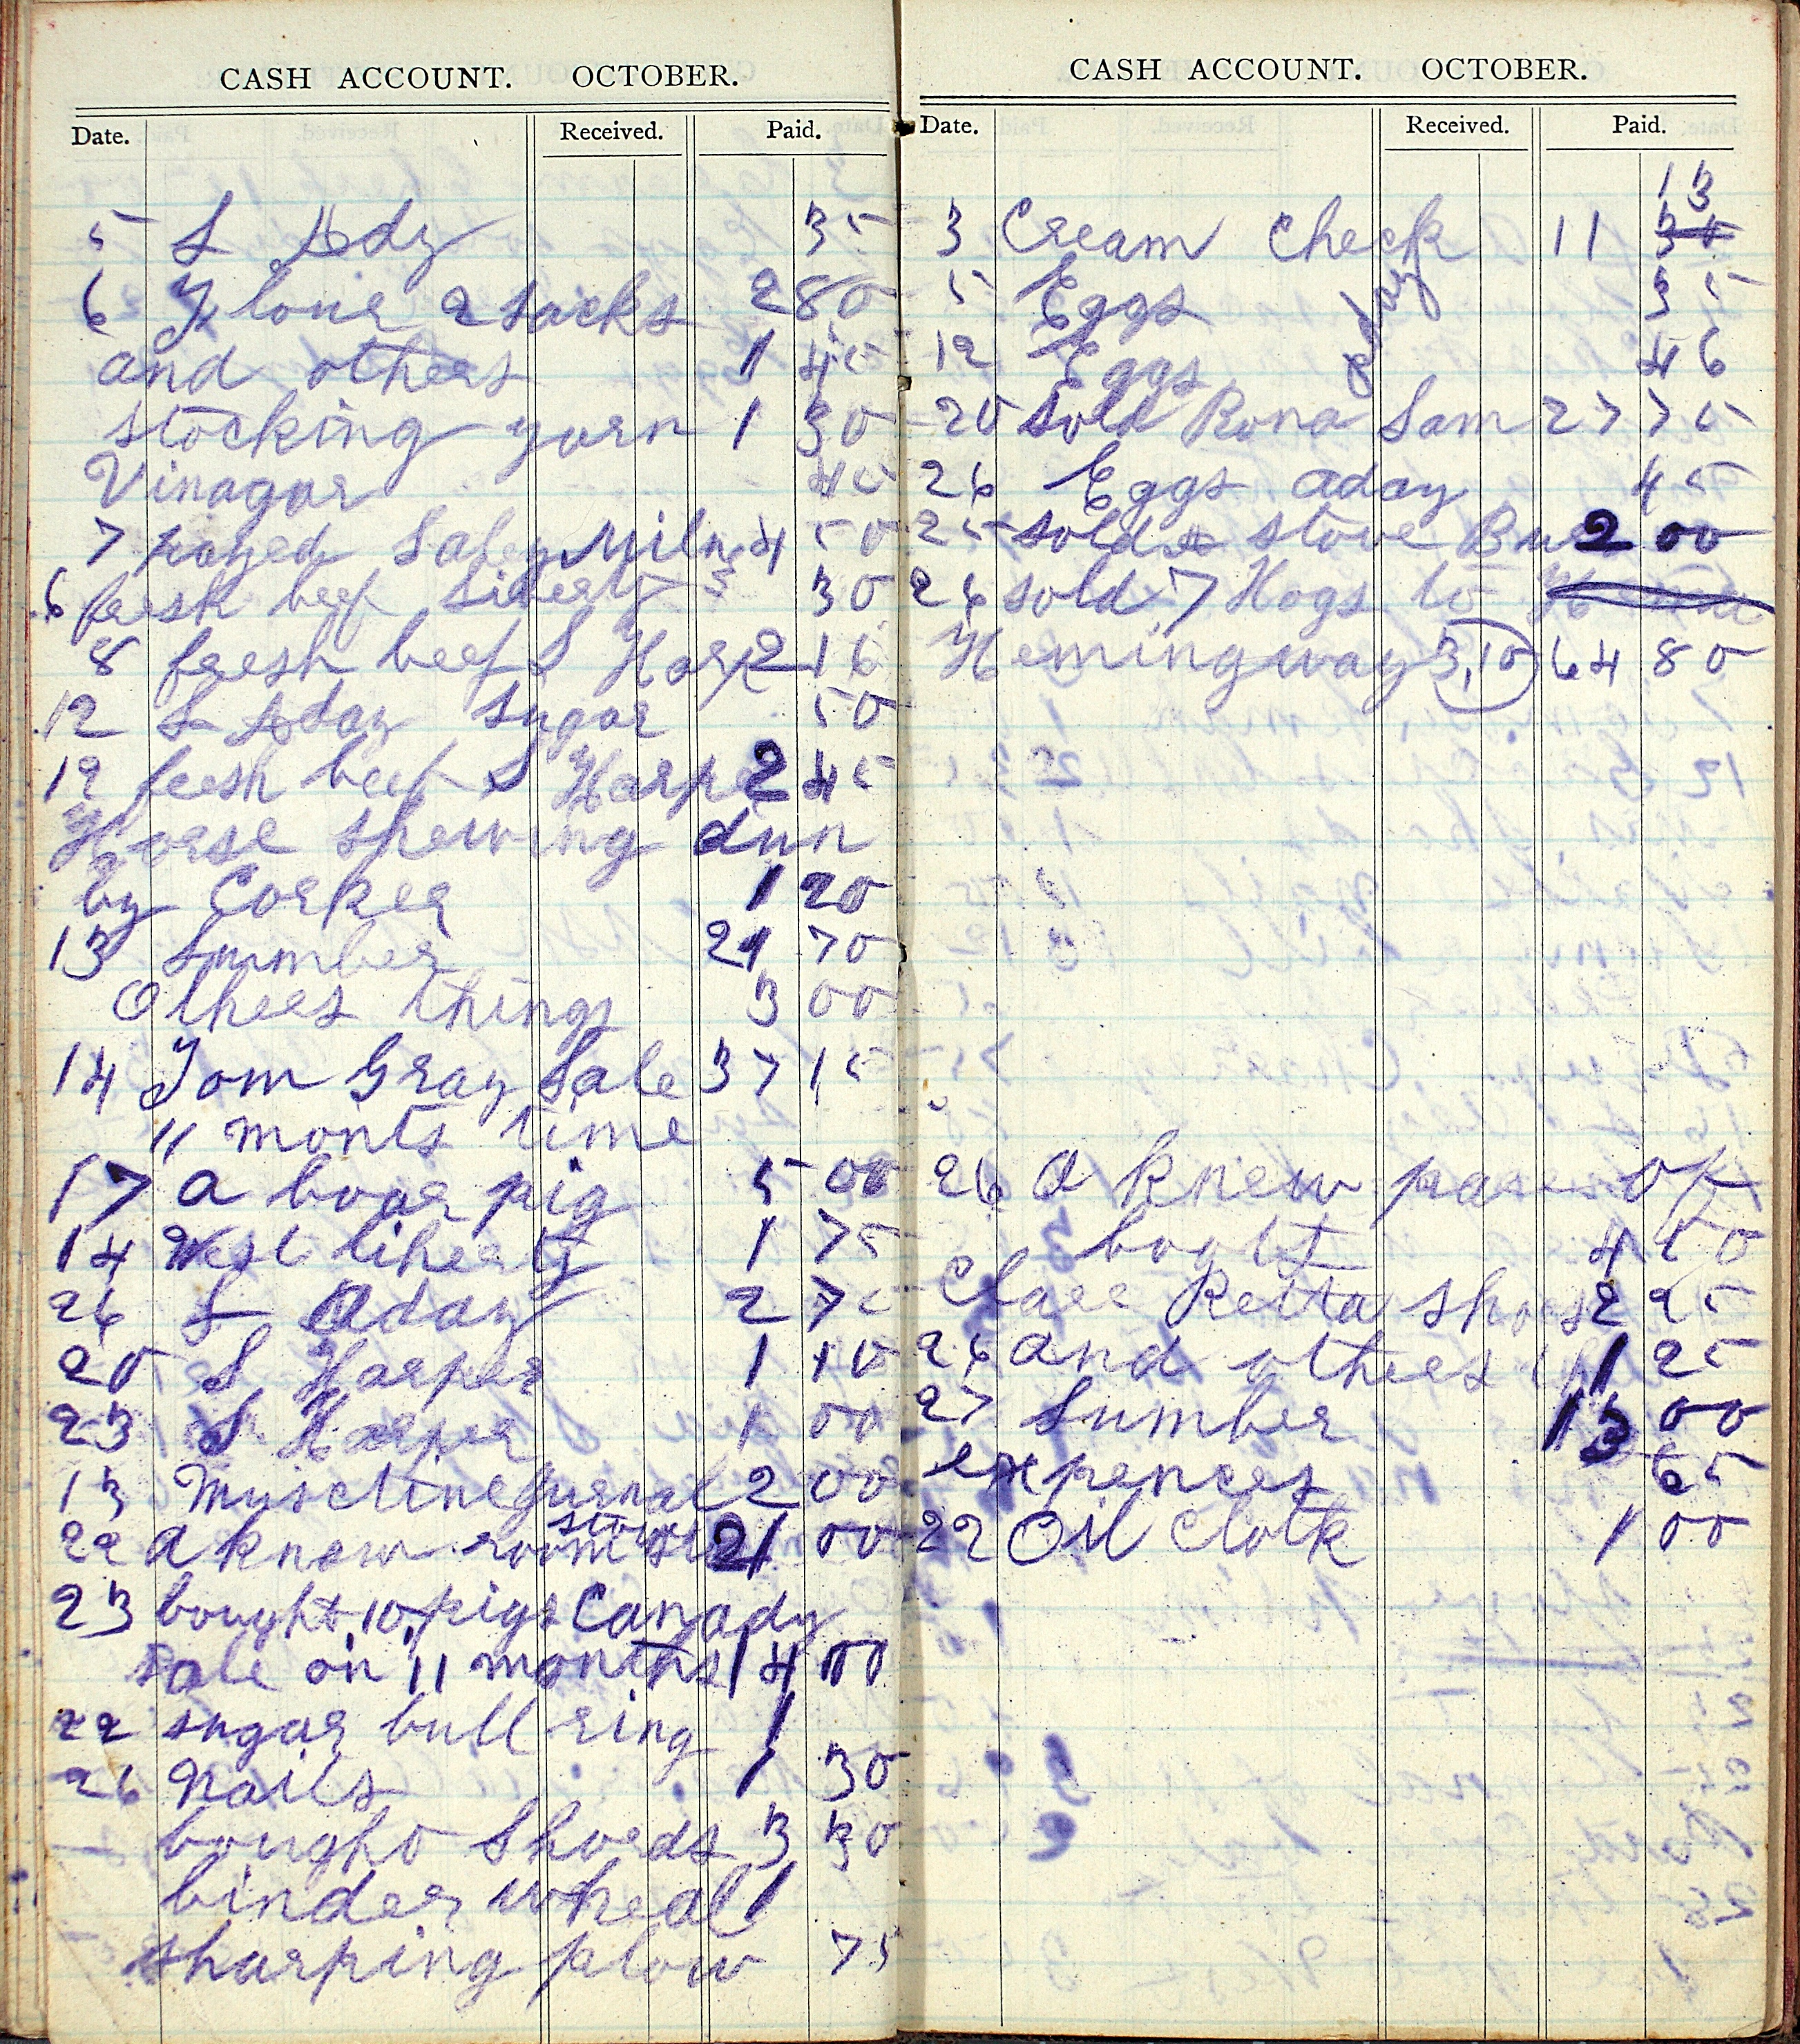 CASH ACCOUNT. OCTOBER.
Date. Received. Paid.
5 S Ady 35
6 Flour 2 sacks 2 80
and others 1 45
stocking yarn 1 30
Vinagar 45
7 payed Saley Miln 4 50
6 fresh beef 30
8 fresh beef S Harp 2 16
12 S Aday sugar 50
19 fresh beef S Harpe 2 45
Horse shewing dun
by Corker 1 20
13 Lumber 21 70
Others things 3 00
14 Tom Gray Sale 37 15
11 monts time
17 a boar pig 5 00
14 West liberty 1 75
26 S Aday 2 75
20 S Harper 1 10
23 S Harper 1 00
13 2 00
stove
22 a knew room 21 00
23 bought 10 pigs Canady
Sale on 11 months 14 00
22 sugar bull ring 1
26 Nails 1 30
bought Shoeds 3 30
binder wheal 1
sharping plow 75
CASH ACCOUNT. OCTOBER.
Date. Received. Paid.
13
3 Cream Check 11 34
5 Eggs 35
aday
12 Eggs 46
20 Sold Rona Sam 27 75
26 Eggs aday 45
25 sold a stove 2 00
26 sold 7 Hogs to
Hemingway 3,10 64 80
26 A knew pare of
boots 4 50
Clare Retta Shoes 2 25
26 and others 1 25
27 Lumber 13 00
expences 65
22 Oil Cloth 1 00